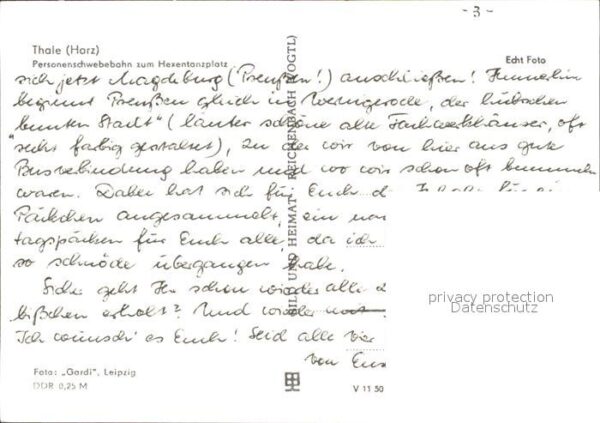 - 3 -
Thale (Harz)
Personenschwebebahn zum Hexentanzplatz
Echt Foto
sich jetzt Magdeburg (Preußen!) anschließen! Immerhin
beginnt Preußen gleich in Wernigerode, der hübschen
"bunten Stadt" (lauter schöne alte Fachwerkhäuser, oft
sehr farbig gestaltet), zu der wir von hier aus gute
Busverbindung haben und wo wir schon oft bummeln
waren. Dabei hat sich für Euch
Päckchen angesammelt, ein
tagspäckchen für Euch alle, da ich
so schnöde übergangen habe.
Sicher geht Ihr schon wieder alle
bißchen erholt? Und wieder
Ich wünsche es Euch! Seid alle vier
von
BILD UND HEIMAT REICHENBACH (VOGTL)
privacy protection
Datenschutz
Foto: „Gardi", Leipzig
DDR 0,25 M
V 11 50